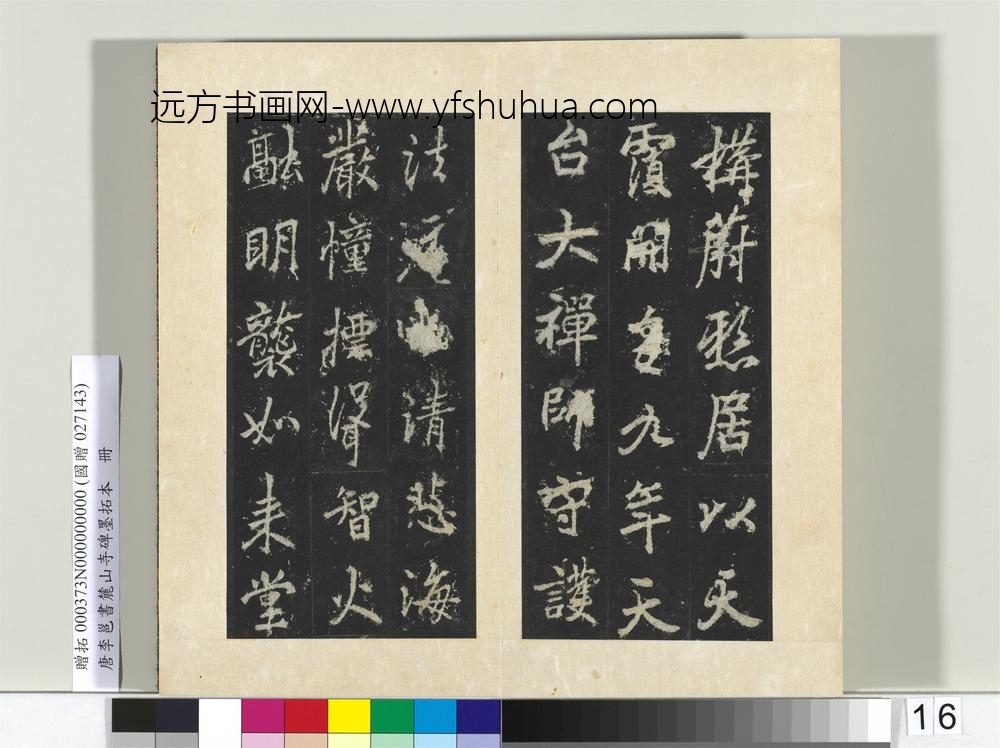 远方书画网-www.yfshuhua.com
搆蔚居以天
霞開皇九年天
台大禪師守護
法清悲海
嚴幢摽智火
融明襲如来堂
贈拓 000373N000000000 (國贈 027143)
唐李邕書麓山寺碑墨拓本 冊
16